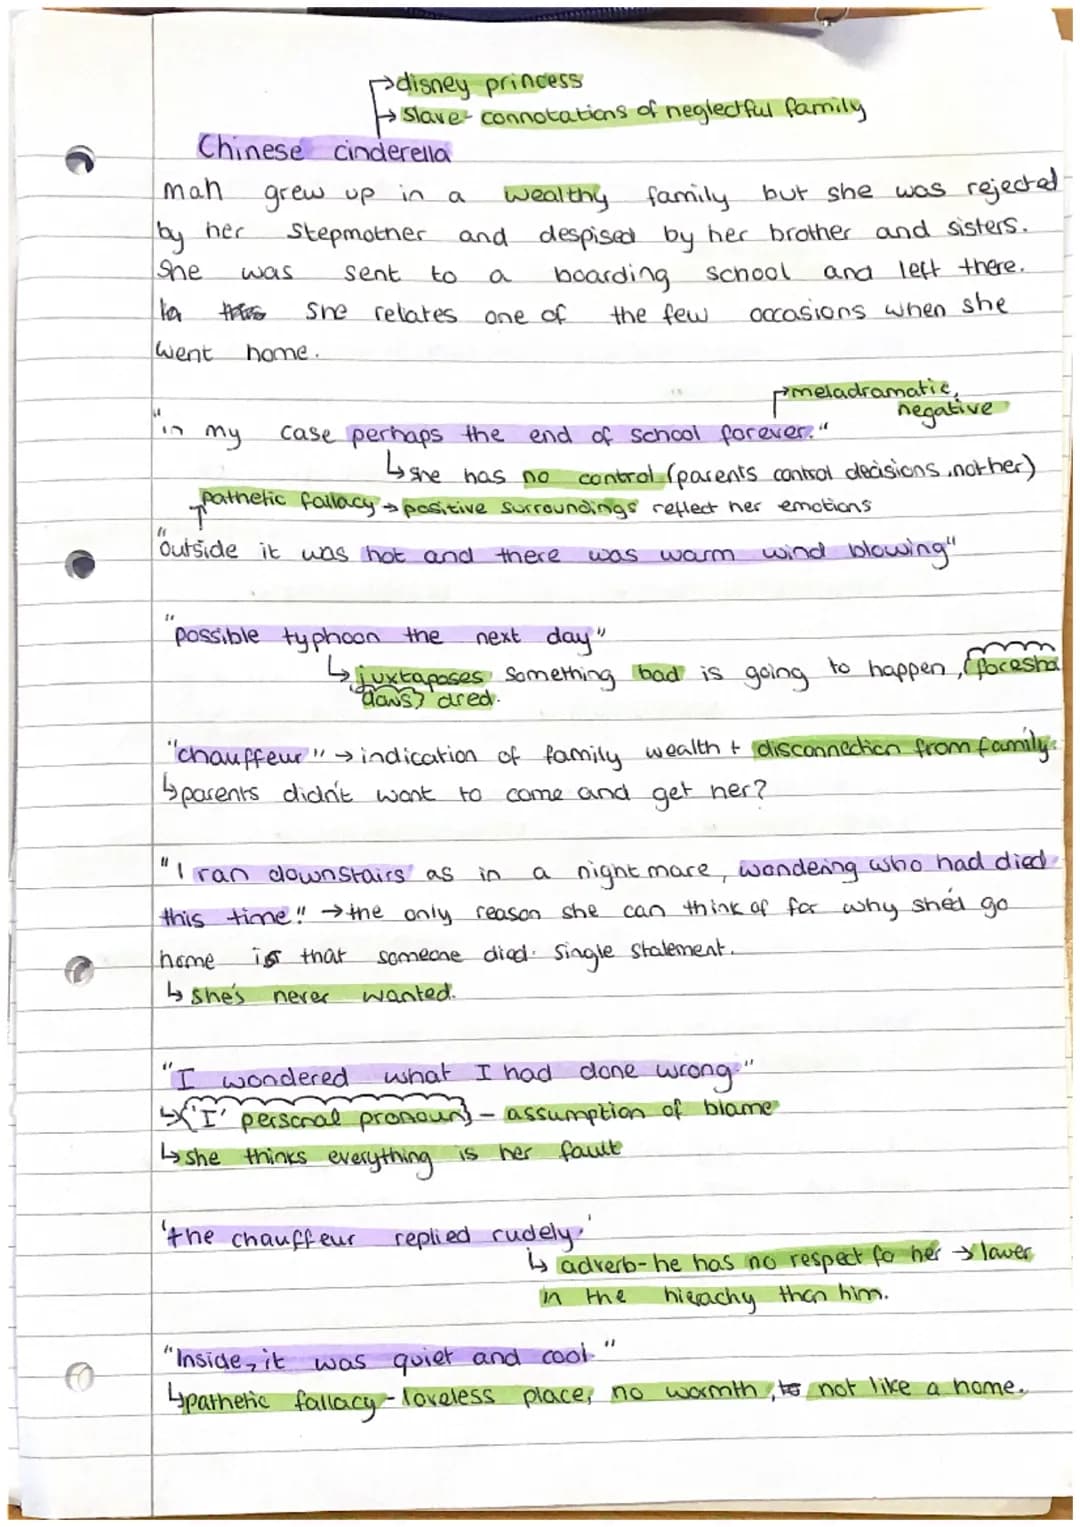 →disney princess
→ slave - connotations of neglectful family
Chinese cinderella
mah grew up in a wealthy family but she was rejected
by her stepmother and despised by her brother and sisters.
She was sent to a boarding school and left there.
she relates one of the few occasions when she
went home.
→meladramatic,
negative
"in my case perhaps the end of school forever."
↳she has no control (parents control decisions, not her)
pathetic fallacy → positive surroundings reflect her emotions
"outside it was hot and there was warm wind blowing"
"possible typhoon the next day"
↳ juxtaposes something bad is going to happen, (foresha
dows) dred.
"chauffeur" → indication of family wealth + disconnection from family.
↳parents didn't want to come and get her?
"I ran downstairs as in a nightmare, wondering who had died
this time!" → the only reason she can think of for why she'd go
home is that someone died. Single statement.
↳ she's never wanted.
"I wondered what I had done wrong."
↳('I' personal pronoun) - assumption of blame
↳ she thinks everything is her fault
'the chauffeur replied rudely.'
↳ adverb- he has no respect fo her → lower
in the hierachy than him.
"Inside, it was quiet and cool."
↳pathetic fallacy - loveless place, no warmth, to not like a home.